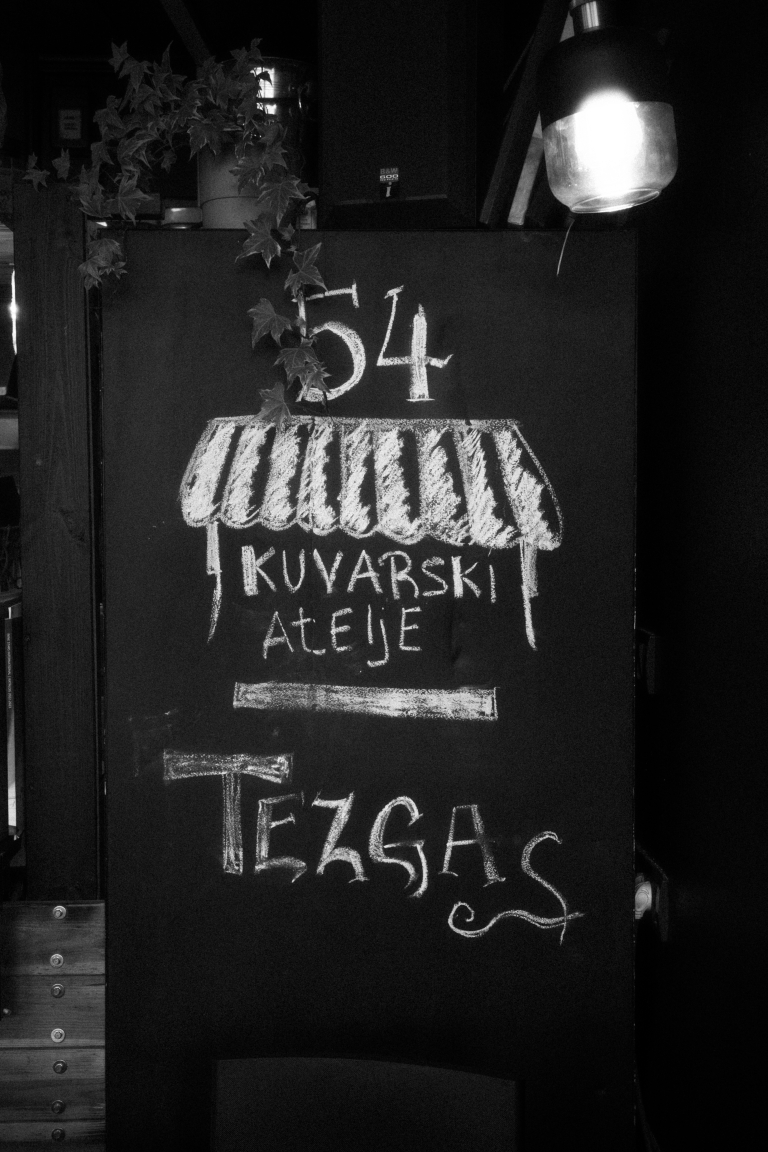 54
KUVARSKi
AtEljE
TEZGAS